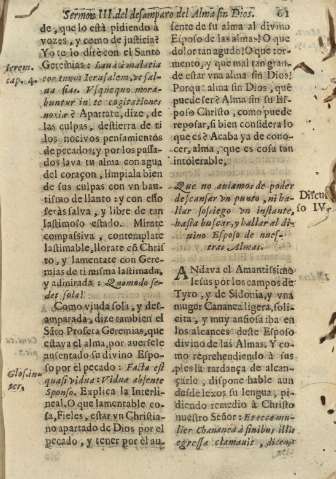 Sermon III. del desamparo del Alma sin Dios. 61
de, que lo està pidiendo à
vozes, y como de justicia?
Yo te lo dirè con el Santo
Geremias: Lava à malitia
cor tuum Ierusalem, vt sal-
va sias. Vsquequo mora-
buntur in te cogitationes
noxiæ? Apartate, dize, de
las culpas, destierra de ti
los nocivos pensamientos
de pecado: y por los passa-
dos lava tu alma con agua
del coraçon, limpiala bien
de sus culpas con vn bau-
tismo de llanto: y con esso
seràs salva, y libre de tan
lastimoso estado. Mirate
compassiva, contemplate
lastimable, llorate cõ Chris-
to, y lamentate con Gere-
mias de ti misma lastimada,
y admirada: Quomodo se-
det sola!
Como viuda sola, y des-
amparada, dize tambien el
Sãto Profeta Geremias, que
estaya el alma, por aversele
ausentado su divino Espo-
so por el pecado: Facta est
quasi vidua: Vidua absente
Sponso. Explica la Interli-
neal. O que lamentable co-
sa, Fieles, estar vn Christia-
no apartado de Dios por el
pecado, y tener por èl au-
Ierem.
cap. 4.
Glos. in-
ter.
sente de su alma al divino
Esposo de las almas! O que
dolor tan agudo! O que tor-
mento, y que mal tan gran-
de estar vna alma sin Dios!
Porq̃ alma sin Dios, què
puede ser? Alma sin su Es-
poso Christo, como puede
reposar, si bien considera lo
que es? Acaba ya de cono-
cer, alma, que es cosa tan
intolerable,
Que no aviamos de poder
descansar vn punto, ni ha-
llar sossiego vn instante,
hasta buscar, y hallar al di-
vino Esposo de nues-
tras Almas.
Discur-
so IV.
ANdava el Amantissimo
Iesus por los campos de
Tyro, y de Sidonia, y vna
muger Cananea ligera, soli-
cita, y muy ansiosa iba en
los alcances deste Esposo
divino de las Almas. Y co-
mo reprehendiendo à sus
pies la tardança de alcan-
çarlo, dispone hable aun
desde lexos su lengua, pi-
diendo remedio à Christo
nuestro Señor: Ecce mu-
lier Chananæa à finibus illis
egressa clamavit, dicens